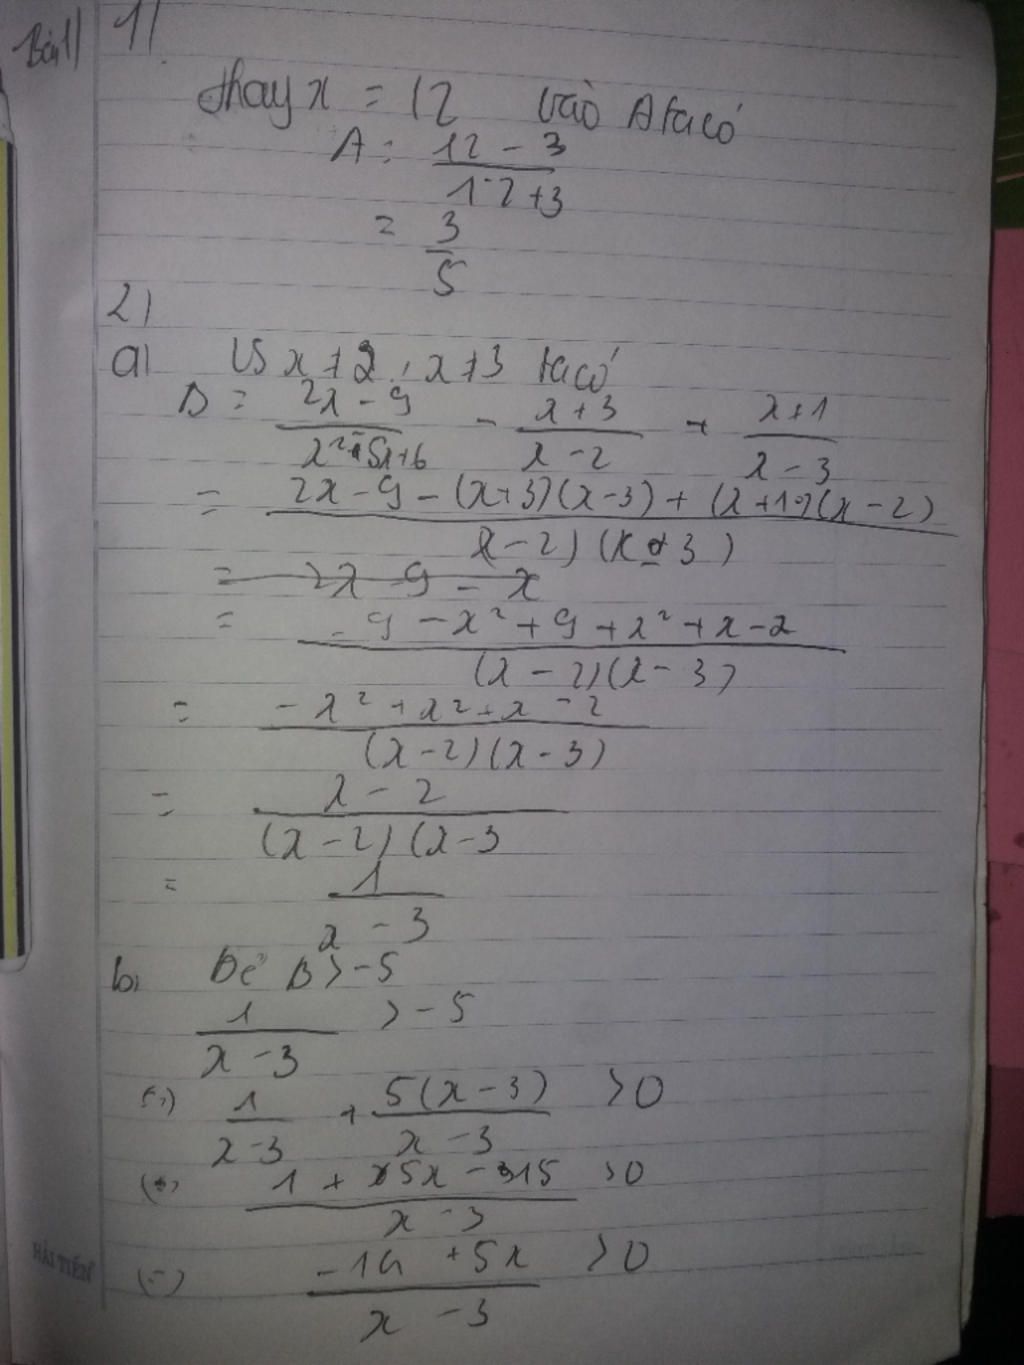 Bài 1) 1)
thay x = 12 vào A ta có
A = 12 - 3 / 12 + 3
= 3 / 5
2)
a) Với x ≠ 2, x ≠ 3 ta có
B = 2x - 9 / x² - 5x + 6 - x + 3 / x - 2 + x + 1 / x - 3
= 2x - 9 - (x + 3)(x - 3) + (x + 1)(x - 2) / (x - 2)(x - 3)
= 2x - 9 - x
= - 9 - x² + 9 + x² + x - 2 / (x - 2)(x - 3)
= - x² + x² + x - 2 / (x - 2)(x - 3)
= x - 2 / (x - 2)(x - 3
= 1 / x - 3
b) Để B > -5
1 / x - 3 > -5
(=) 1 / x - 3 + 5(x - 3) / x - 3 > 0
(=) 1 + 5x - 15 / x - 3 > 0
(=) -14 + 5x / x - 3 > 0
HẢI TIẾN